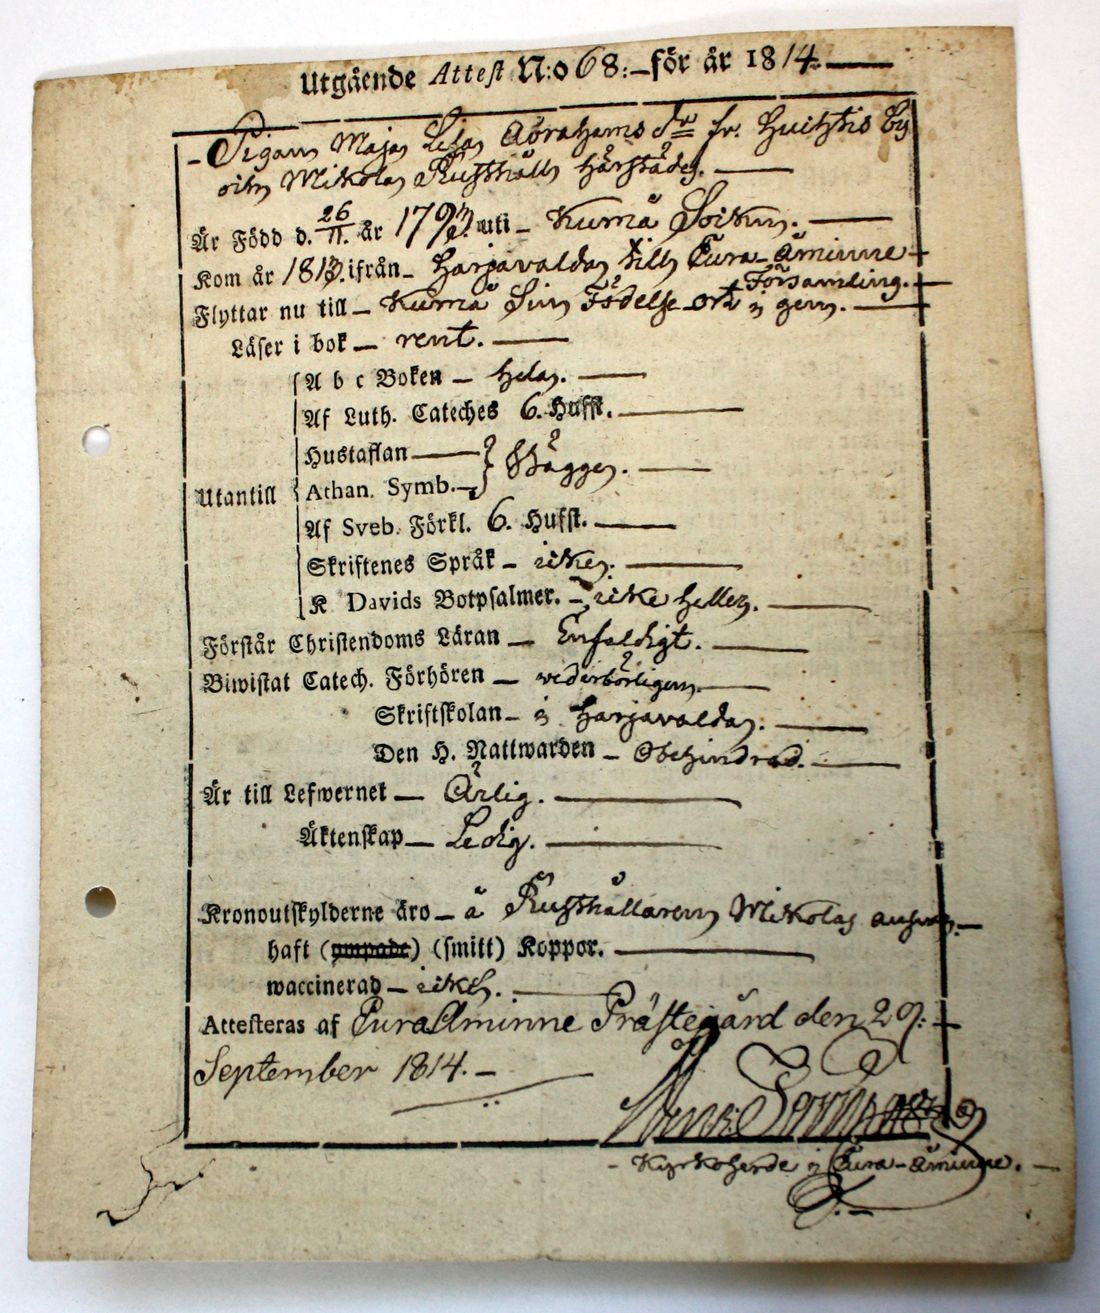 Utgående Attest N:o 68:– för år 1814.
– Pigan Maja Lisa Abrahams dr fr. Huittis By
och Mikola Rusthåll härstädes.
Är Född d. 26/11. år 1793. uti – Kumå Soikun.
Kom år 1813. ifrån – Harjavalda till Eura-åminne
Församling.
Flyttar nu till – Kumå Sin Födelse ort igen.
Läser i bok – rent.
A b c Boken – hela.
Af Luth. Cateches 6. Hufst.
Hustaflan
Utantill
Athan. Symb. – Bägge.
Af Sveb. Förkl. 6. Hufst.
Skriftenes Språk – icke.
K Davids Botpsalmer. – icke heller.
Förstår Christendoms Läran – Enfaldigt.
Biwistat Catech. Förhören – wederbörligen.
Skriftskolan – i Harjavalda.
Den H. Nattwarden – Obehindrad.
Är till Lefwernet – Ärlig.
Äktenskap – Ledig.
Kronoutskylderne äro – å Rusthållaren Mikola
haft (ympade) (smitt) Koppor.
waccinerad – icke.
Attesteras af EuraÅminne Prästegård den 29:
September 1814. –
– Kyrkoherde i Eura-åminne. –